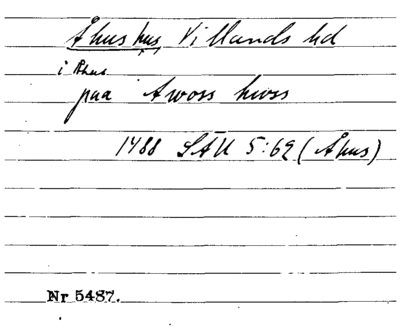 Åhus hus Villands hd
i Åhus
paa Awoss hwss
1488 SÄU 5:69 (Åhus)
Nr 5487.